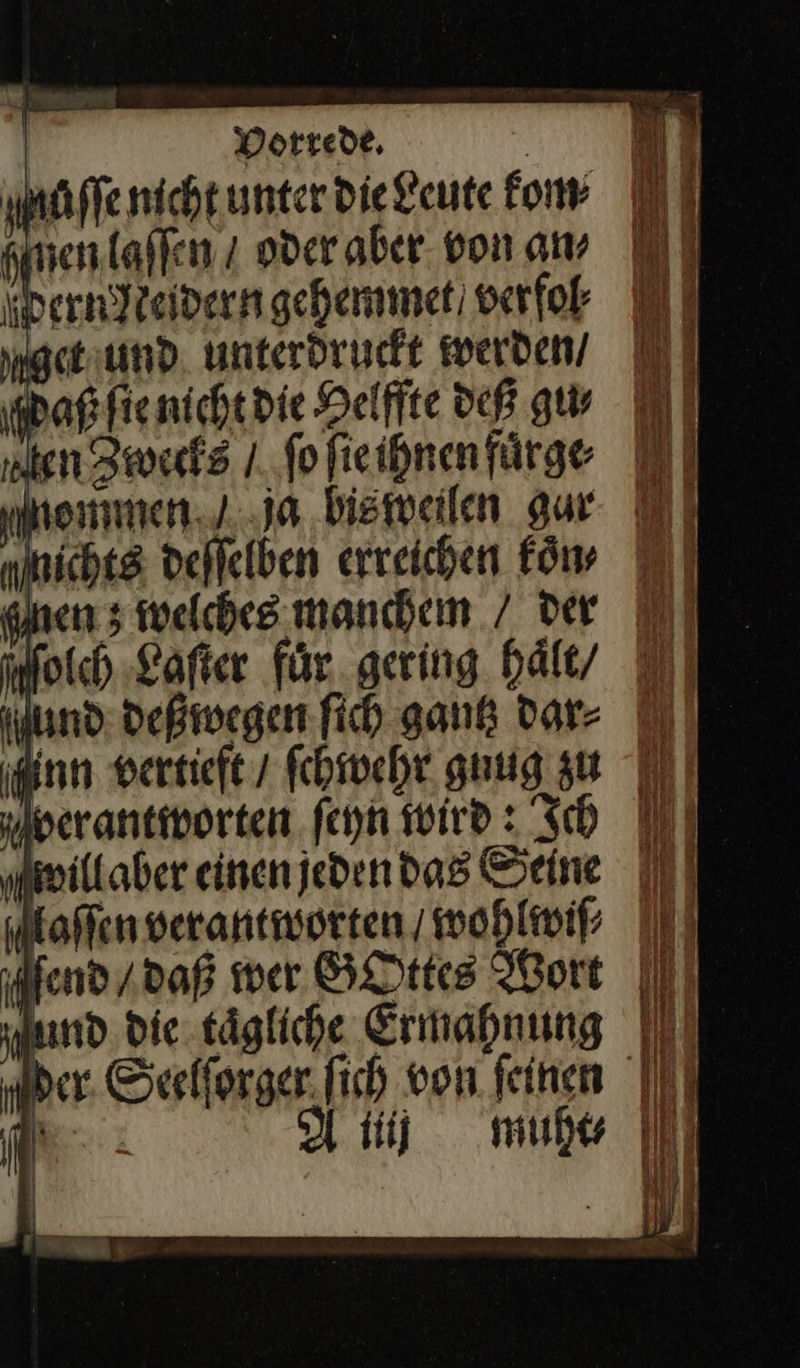 Vorrede.
muͤſſe nicht unter die Leute kom⸗
men laſſen / oder aber von an⸗
dern Neidern gehemmet / verfol⸗
get und unterdruckt werden /
daß ſie nicht die Helffte deß gu⸗
ten Zwecks / ſo ſie ihnen fuͤrge⸗
nommen / ja bisweilen gar
nichts deſſelben erreichen koͤn⸗
nen ; welches manchem / der
ſolch Laſter fuͤr gering haͤlt /
und deßwegen ſich gantz dar⸗
inn vertieft / ſchwehr gnug zu
verantworten ſeyn wird : Ich
will aber einen jeden das Seine
laſſen verantworten / wohlwiſ⸗
ſend / daß wer GOttes Wort
und die taͤgliche Ermahnung
der Seelſorger ſich von ſeinen
A iiij muht⸗